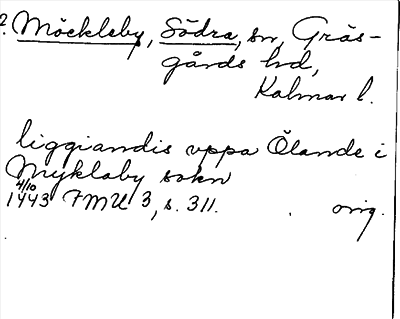 2. Möckleby, Södra, sn, Gräs-
gårds hd,
Kalmar l.
liggiandis vppa Ölande i
Mykloby sokn
4/10
1443 FMU 3, s. 311. orig.